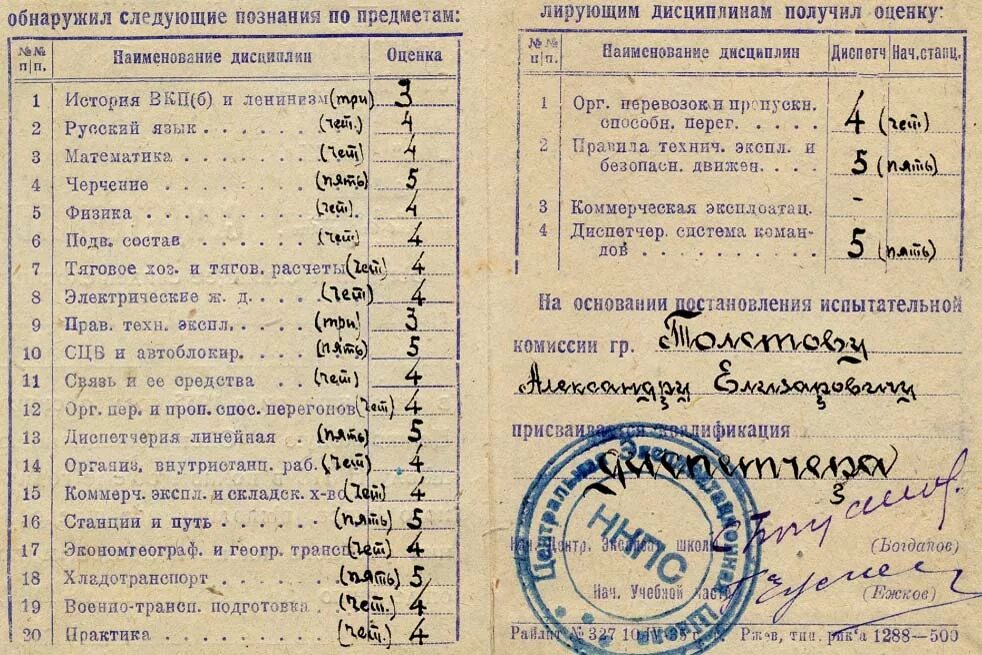 обнаружил следующие познания по предметам:
№№ п|п. Наименование дисциплин Оценка
1 История ВКП(б) и ленинизм (три) 3
2 Русский язык (чет.) 4
3 Математика (чет) 4
4 Черчение (пять) 5
5 Физика (чет.) 4
6 Подв. состав (чет) 4
7 Тяговое хоз. и тягов. расчеты (чет) 4
8 Электрические ж. д. (чет) 4
9 Прав. техн. экспл. (три) 3
10 СЦБ и автоблокир. (пять) 5
11 Связь и ее средства (чет) 4
12 Орг. пер. и проп. спос. перегонов (чет) 4
13 Диспетчерия линейная (пять) 5
14 Организ. внутристанц. раб. (чет) 4
15 Коммерч. экспл. и складск. х-во (чет) 4
16 Станции и путь (пять) 5
17 Экономгеограф. и геогр. трансп (чет) 4
18 Хладотранспорт (пять) 5
19 Военно-трансп. подготовка (чет.) 4
20 Практика (чет.) 4
лирующим дисциплинам получил оценку:
№№ п|п. Наименование дисциплин Диспетч Нач.станц.
1 Орг. перевозок и пропускн.
способн. перег. 4 (чет)
2 Правила технич. экспл. и
безопасн. движен. 5 (пять)
3 Коммерческая эксплоатац. -
4 Диспетчер. система коман-
дов 5 (пять)
На основании постановления испытательной
комиссии гр. Толстову
Александру Елизаровичу
присваивается квалификация
диспетчера
Центральная Эксплоатационная
ННПС
Нач. Центр. Эксплоат школы (Богдапов)
Нач. Учебной части (Ежков)
Райлит № 327 10/IV 35 г. Ржев, тип. рик'а 1288—500